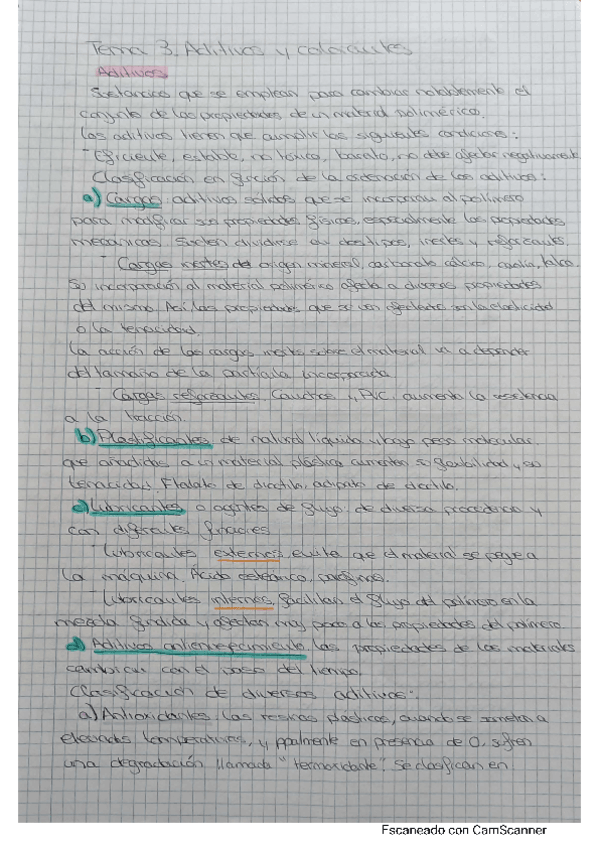 Tema 3. Aditivos y colorantes
Aditivos
Sustancias que se emplean para cambiar notablemente el
conjunto de las propiedades de un material polimérico.
Los aditivos tienen que cumplir las siguientes condiciones:
- Eficiente, estable, no tóxico, barato, no debe afectar negativamente
Clasificación en función de la ordenación de los aditivos:
a) Cargas aditivos sólidos que se incorporan al polímero
para modificar sus propiedades físicas, especialmente las propiedades
mecánicas. Suelen dividirse en dos tipos, inertes y reforzants.
- Cargas inertes de origen mineral, carbonato cálcico, caolín, talco.
Su incorporación al material polimérico afecta a diversas propiedades
del mismo. Así las propiedades que se ven afectadas son la elasticidad
o la tenacidad.
La acción de las cargas inertes sobre el material va a depender
del tamaño de la partícula incorporada
- Cargas reforzantes Cauchos y PVC. aumenta la resistencia
a la tracción.
b) Plastificantes de natural líquida y bajo peso molecular
que añadidos a un material plástico aumentan su flexibilidad y su
tenacidad. Ftalato de dioctilo, adipato de dioctilo.
c) Lubricantes o agentes de flujo. de diversa procedencia y
con diferentes funciones
- Lubricantes externos, evita que el material se pegue a
la máquina, Ácido esteárico, parafinas.
- Lubricantes internos, facilitan el flujo del polímero en la
mezcla fundida y afectan muy poco a las propiedades del polímero.
d) Aditivos antienvejecimiento, las propiedades de los materiales
cambian con el paso del tiempo.
Clasificación de diversos aditivos:
a) Antioxidantes, las resinas plásticas, cuando se someten a
elevadas temperaturas, y ppalmente en presencia de O, sufren
una degradación llamada "termoxidante". Se clasifican en:
Escaneado con CamScanner